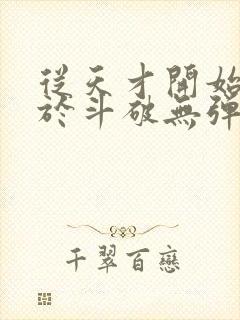 從天才開始
於斗破無彈
千翠百戀